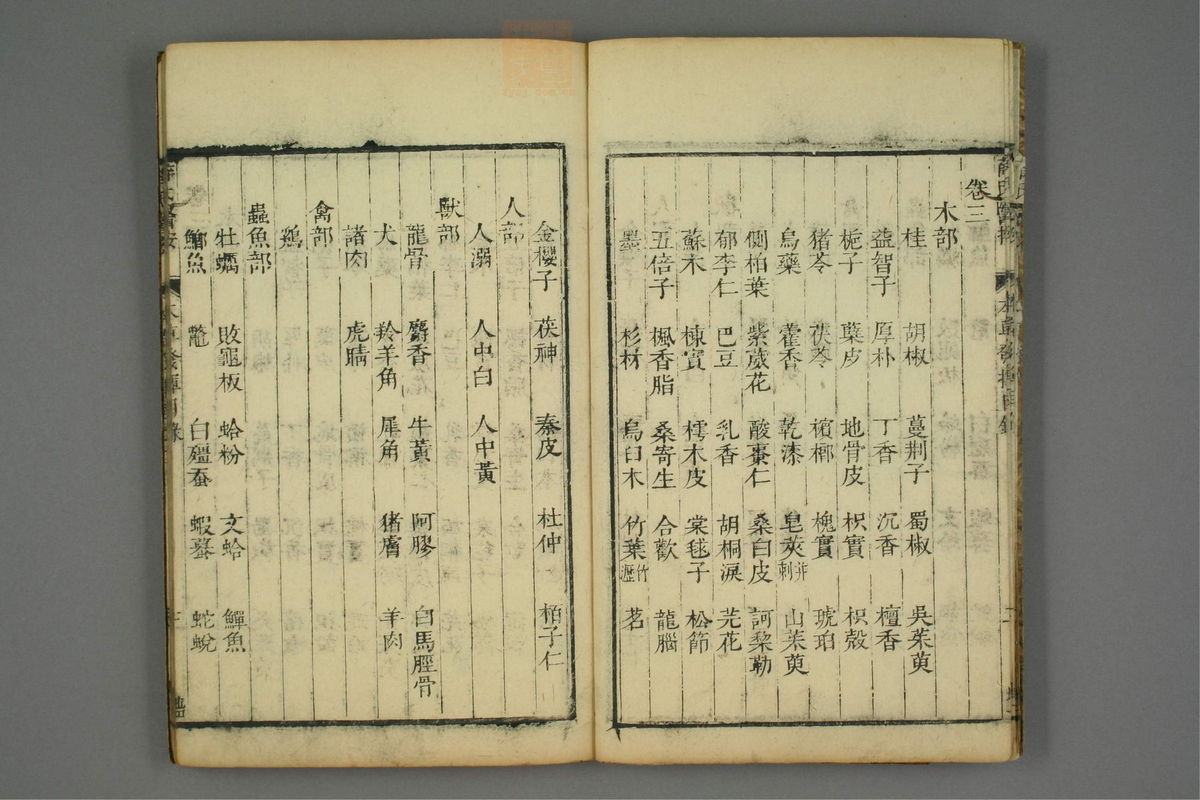 卷三
木部
桂 胡椒 蔓荆子 蜀椒 吳茱萸
益智子 厚朴 丁香 沉香 檀香
梔子 蘗皮 地骨皮 枳實 枳殼
猪苓 茯苓 檳榔 槐實 琥珀
烏藥 藿香 乾漆 皂莢并刺 山茱萸
側柏葉 紫葳花 酸棗仁 桑白皮 訶棃勒
郁李仁 巴豆 乳香 胡桐淚 芫花
蘇木 楝實 樗木皮 棠毬子 松節
五倍子 楓香脂 桑寄生 合歡 龍腦
墨 杉材 烏臼木 竹葉竹瀝 茗
金櫻子 茯神 秦皮 杜仲 柏子仁
人部
人溺 人中白 人中黃
獸部
龍骨 麝香 牛黃 阿膠 白馬脛骨
犬 羚羊角 犀角 猪膚 羊肉
諸肉 虎睛
禽部
鷄
蟲魚部
牡蠣 敗龜板 蛤粉 文蛤 鱓魚
鯽魚 鱉 白殭蚕 蝦蟇 蛇蛻